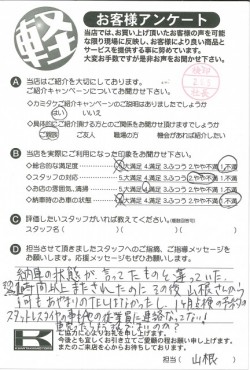 軽
お客様アンケート
当店では、お買い上げ頂いたお客様の声を可能
な限り現場に反映し、お客様により良い商品と
サービスを提供する事に努めています。
大変お手数ですが是非お声をお聞かせ下さい。
A 当店はご紹介を大切にしております。
ご紹介キャンペーンについてお聞かせ下さい。
◇カミタケご紹介キャンペーンのご説明はありましたでしょうか
はい いいえ
◇具体的にご紹介頂ける方とのご関係をお聞かせ頂けますでしょうか
ご親戚 ご友人 職場の方 機会があれば紹介したい
B 当店を実際にご利用になった印象をお聞かせ下さい。
◇総合的な満足度 5.大満足 4.満足 3.ふつう 2.やや不満 1.不満
◇スタッフの対応 5.大満足 4.満足 3.ふつう 2.やや不満 1.不満
◇お店の雰囲気、清掃 5.大満足 4.満足 3.ふつう 2.やや不満 1.不満
◇納車時のお車の状態 5.大満足 4.満足 3.ふつう 2.やや不満 1.不満
C 評価したいスタッフがいれば教えてください。(複数回答可)
スタッフ名( )( )
D 担当させて頂きましたスタッフへのご指摘、ご指導メッセージ
をお願いします。応援メッセージもぜひお願いします。
納車の状態が言ってたものと違っていた。
時間以上またされたのにその後山根さんから
何も
スタットレスタイヤの
ご協力に心よりお礼を申し上げます。
今後とも宜しくお引き立てご愛顧の程お願い申し上げます。
またのご来店を心からお待ちしております。
担当( 山根 )